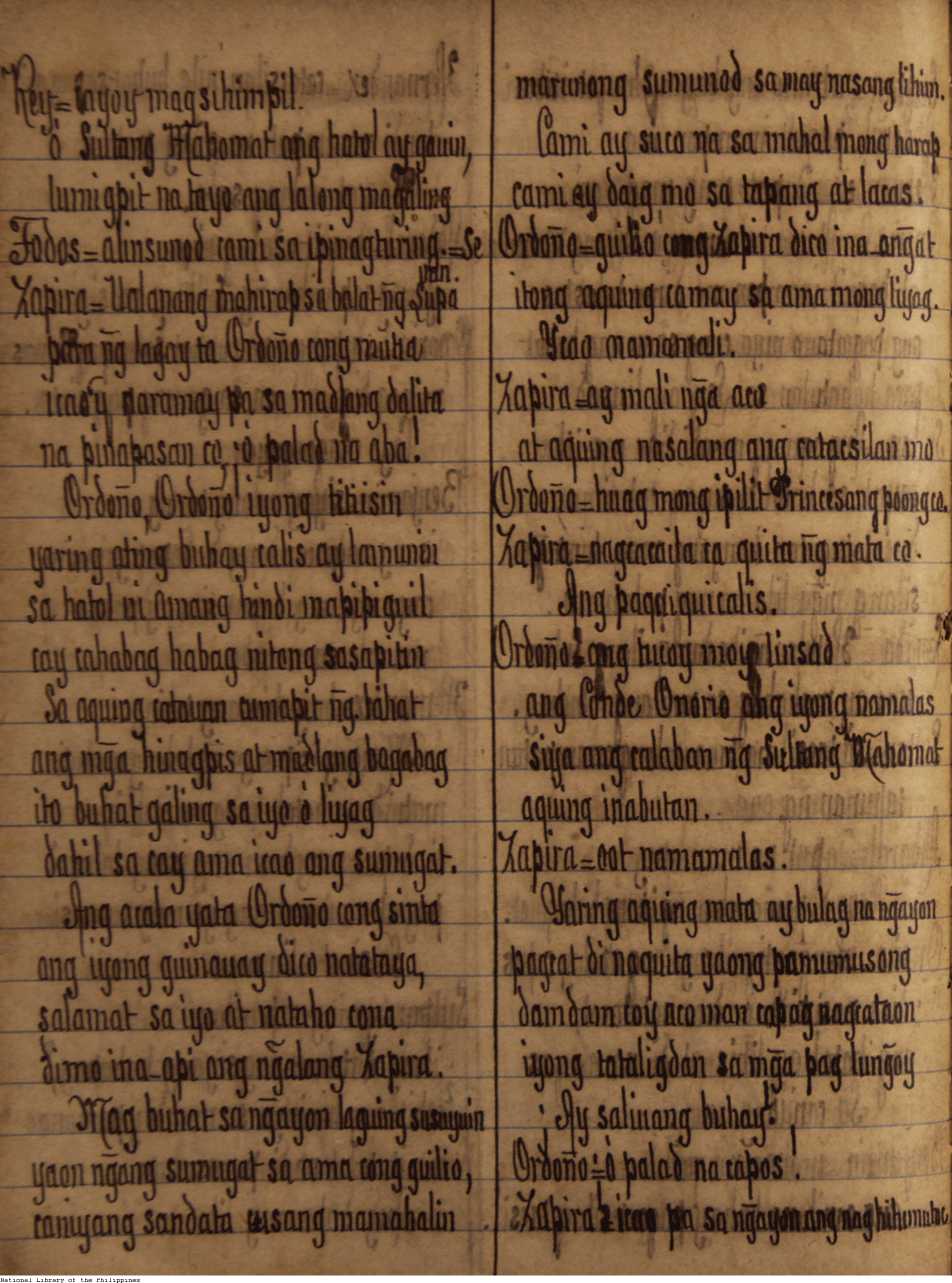 Rey=tayoy magsihimpil.
ò Sultang Mahomat ang hatol ay gauin,
lumigpit na tayo ang lalong magaling
Todos=alinsunod cami sa ipinagturing.=Se
Zapira=Ualanang mahirap sa balat ng̃
para ng̃ lagay ta Ordoño cong mutia
icao'y paramay pa sa madlang dalita
na pinapasan co, ò palad na aba!
Ordoño, Ordoño iyong titisin
yaring ating buhay calis ay
sa hatol ni amang hindi mapipiguil
cay cahabag habag nitong sasapitin
Sa aquing catauan cumapit ng̃ lahat
ang mg̃a hinagpis at madlang bagabag
ito buhat galing sa iyo ò liyag
dahil sa cay ama icao ang sumugat.
Ang acala yata Ordoño cong sinta
ang iyong guinauay dico natataya,
salamat sa iyo at nataho cona
dimo ina-api ang ng̃alang Zapira.
Mag buhat sa ng̃ayon laguing susuyuin
yaon ng̃ang sumugat sa ama cong guilio,
caniyang sandata cusang mamahalin
marunong sumunod sa may nasang lihim.
Cami ay suco na sa mahal mong harap
cami ay daig mo sa tapang at lacas.
Ordoño=guilio cong Zapira dico ina-ang̃at
itong aquing camay sa ama mong liyag.
Ycao namamali.
Zapira=ay mali ng̃a aco
at aquing nasalang ang catacsilan mo
Ordoño=huag mong ipilit Princesang poong co.
Zapira=nagcacaila ca quita ng̃ mata co.
Ang pagquiquicalis.
Ordoño= ang tucoy moy linsad
ang Conde Onorio ang iyong namalas
siya ang calaban ng̃ Sultang Mahomat
aquing inabutan.
Zapira=oot namamalas.
Yaring aquing mata ay bulag na ng̃ayon
pagcat di naquita yaong pamumusong
damdam coy aco man capag nagcataon
iyong tataligdan sa mg̃a pag lung̃oy
¡Ay saliuang buhay!
Ordoño=ò palad na capos!
Zapira= icao pa sa ng̃ayon ang